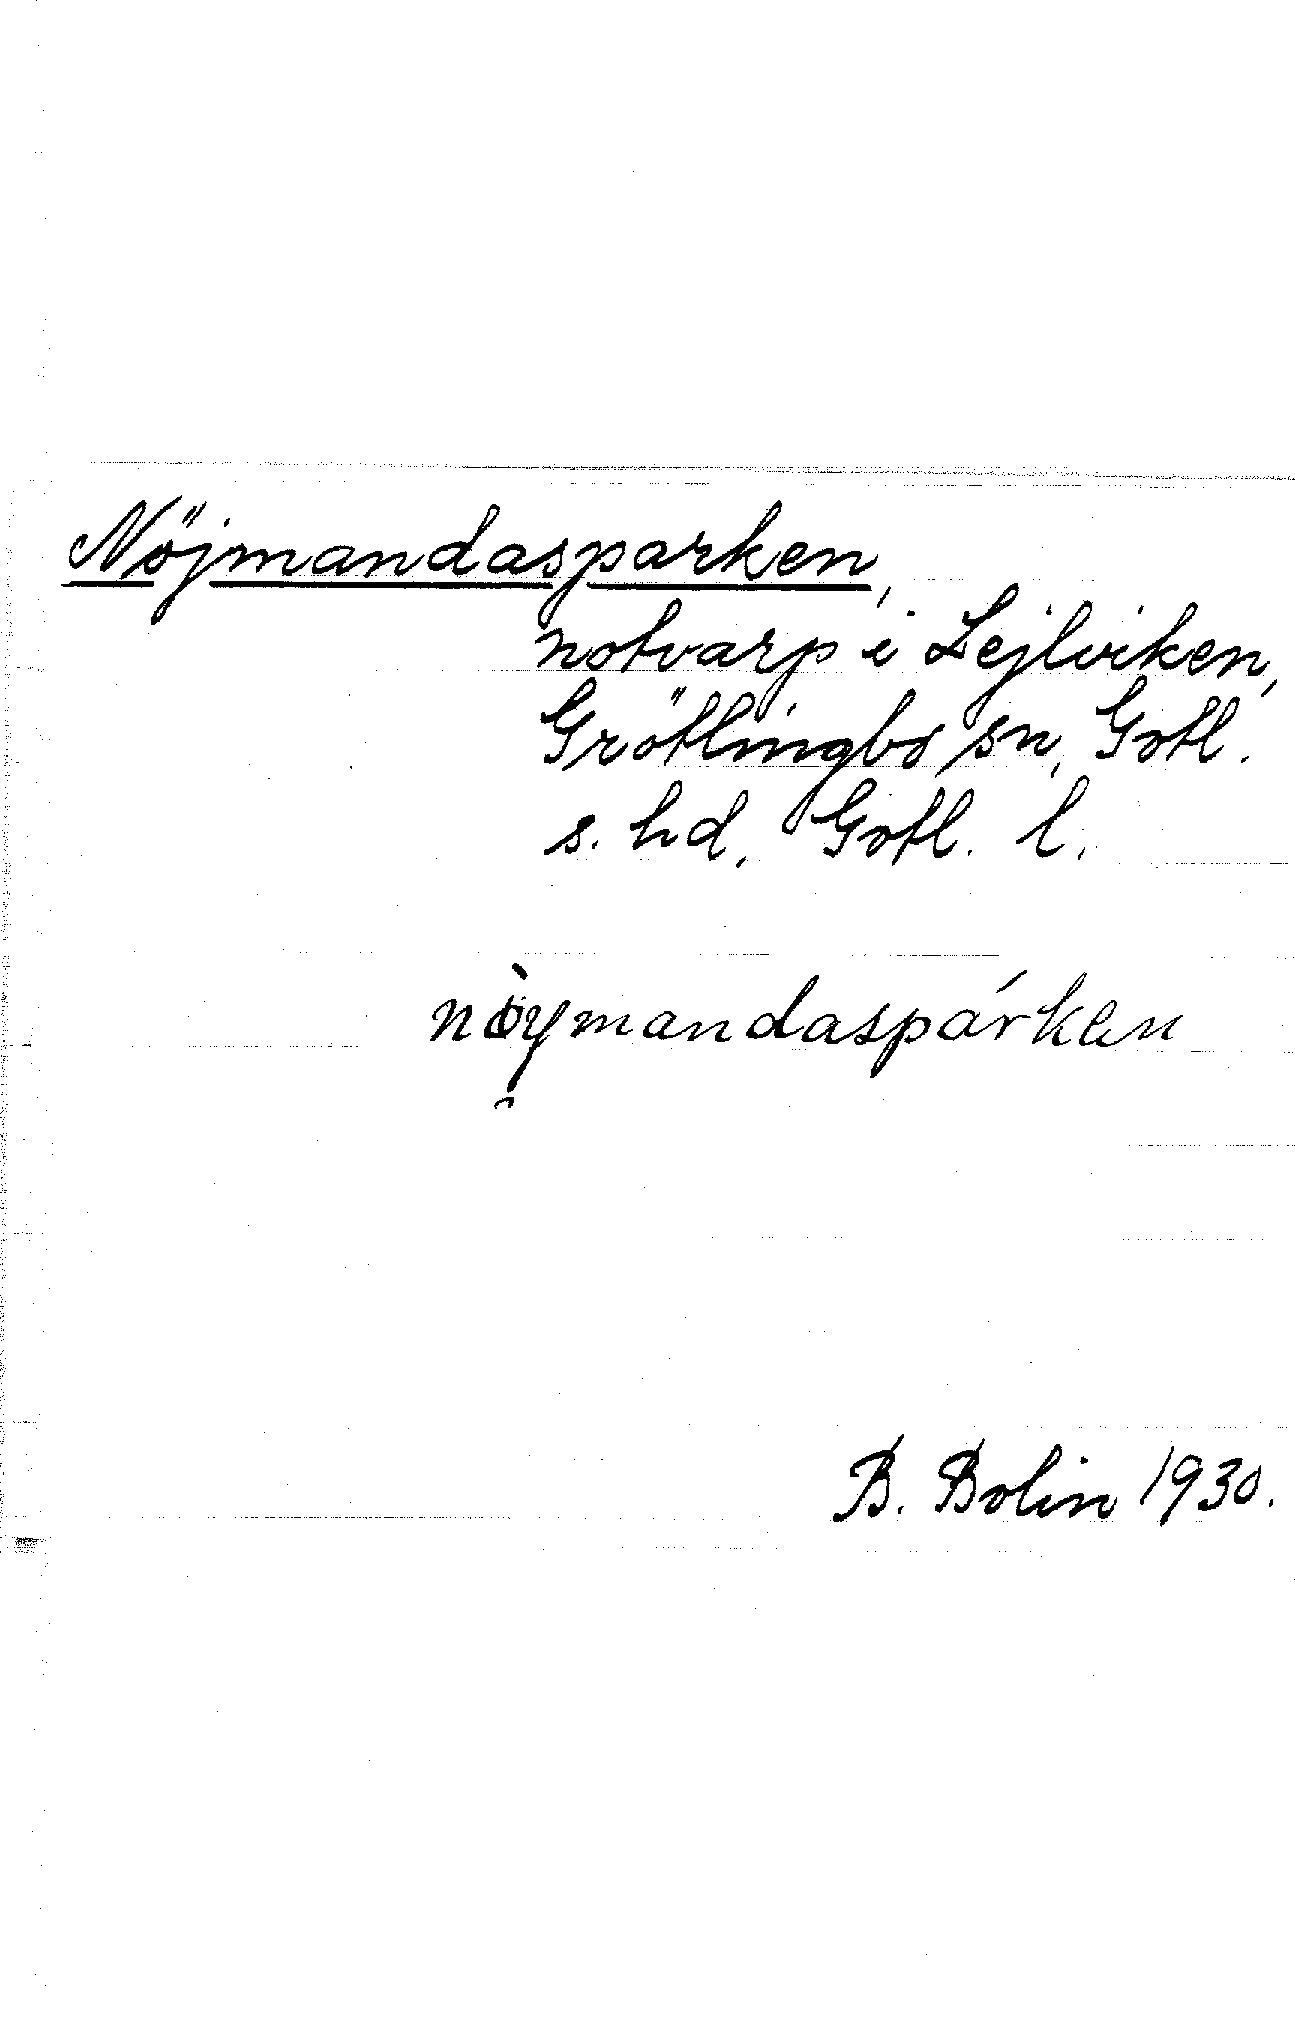 Nöjmandasparken,
notvarp i Lejlviken,
Grötlingbo sn, Gotl.
s. hd, Gotl. l.
nöymandaspárken
B. Bolin 1930.